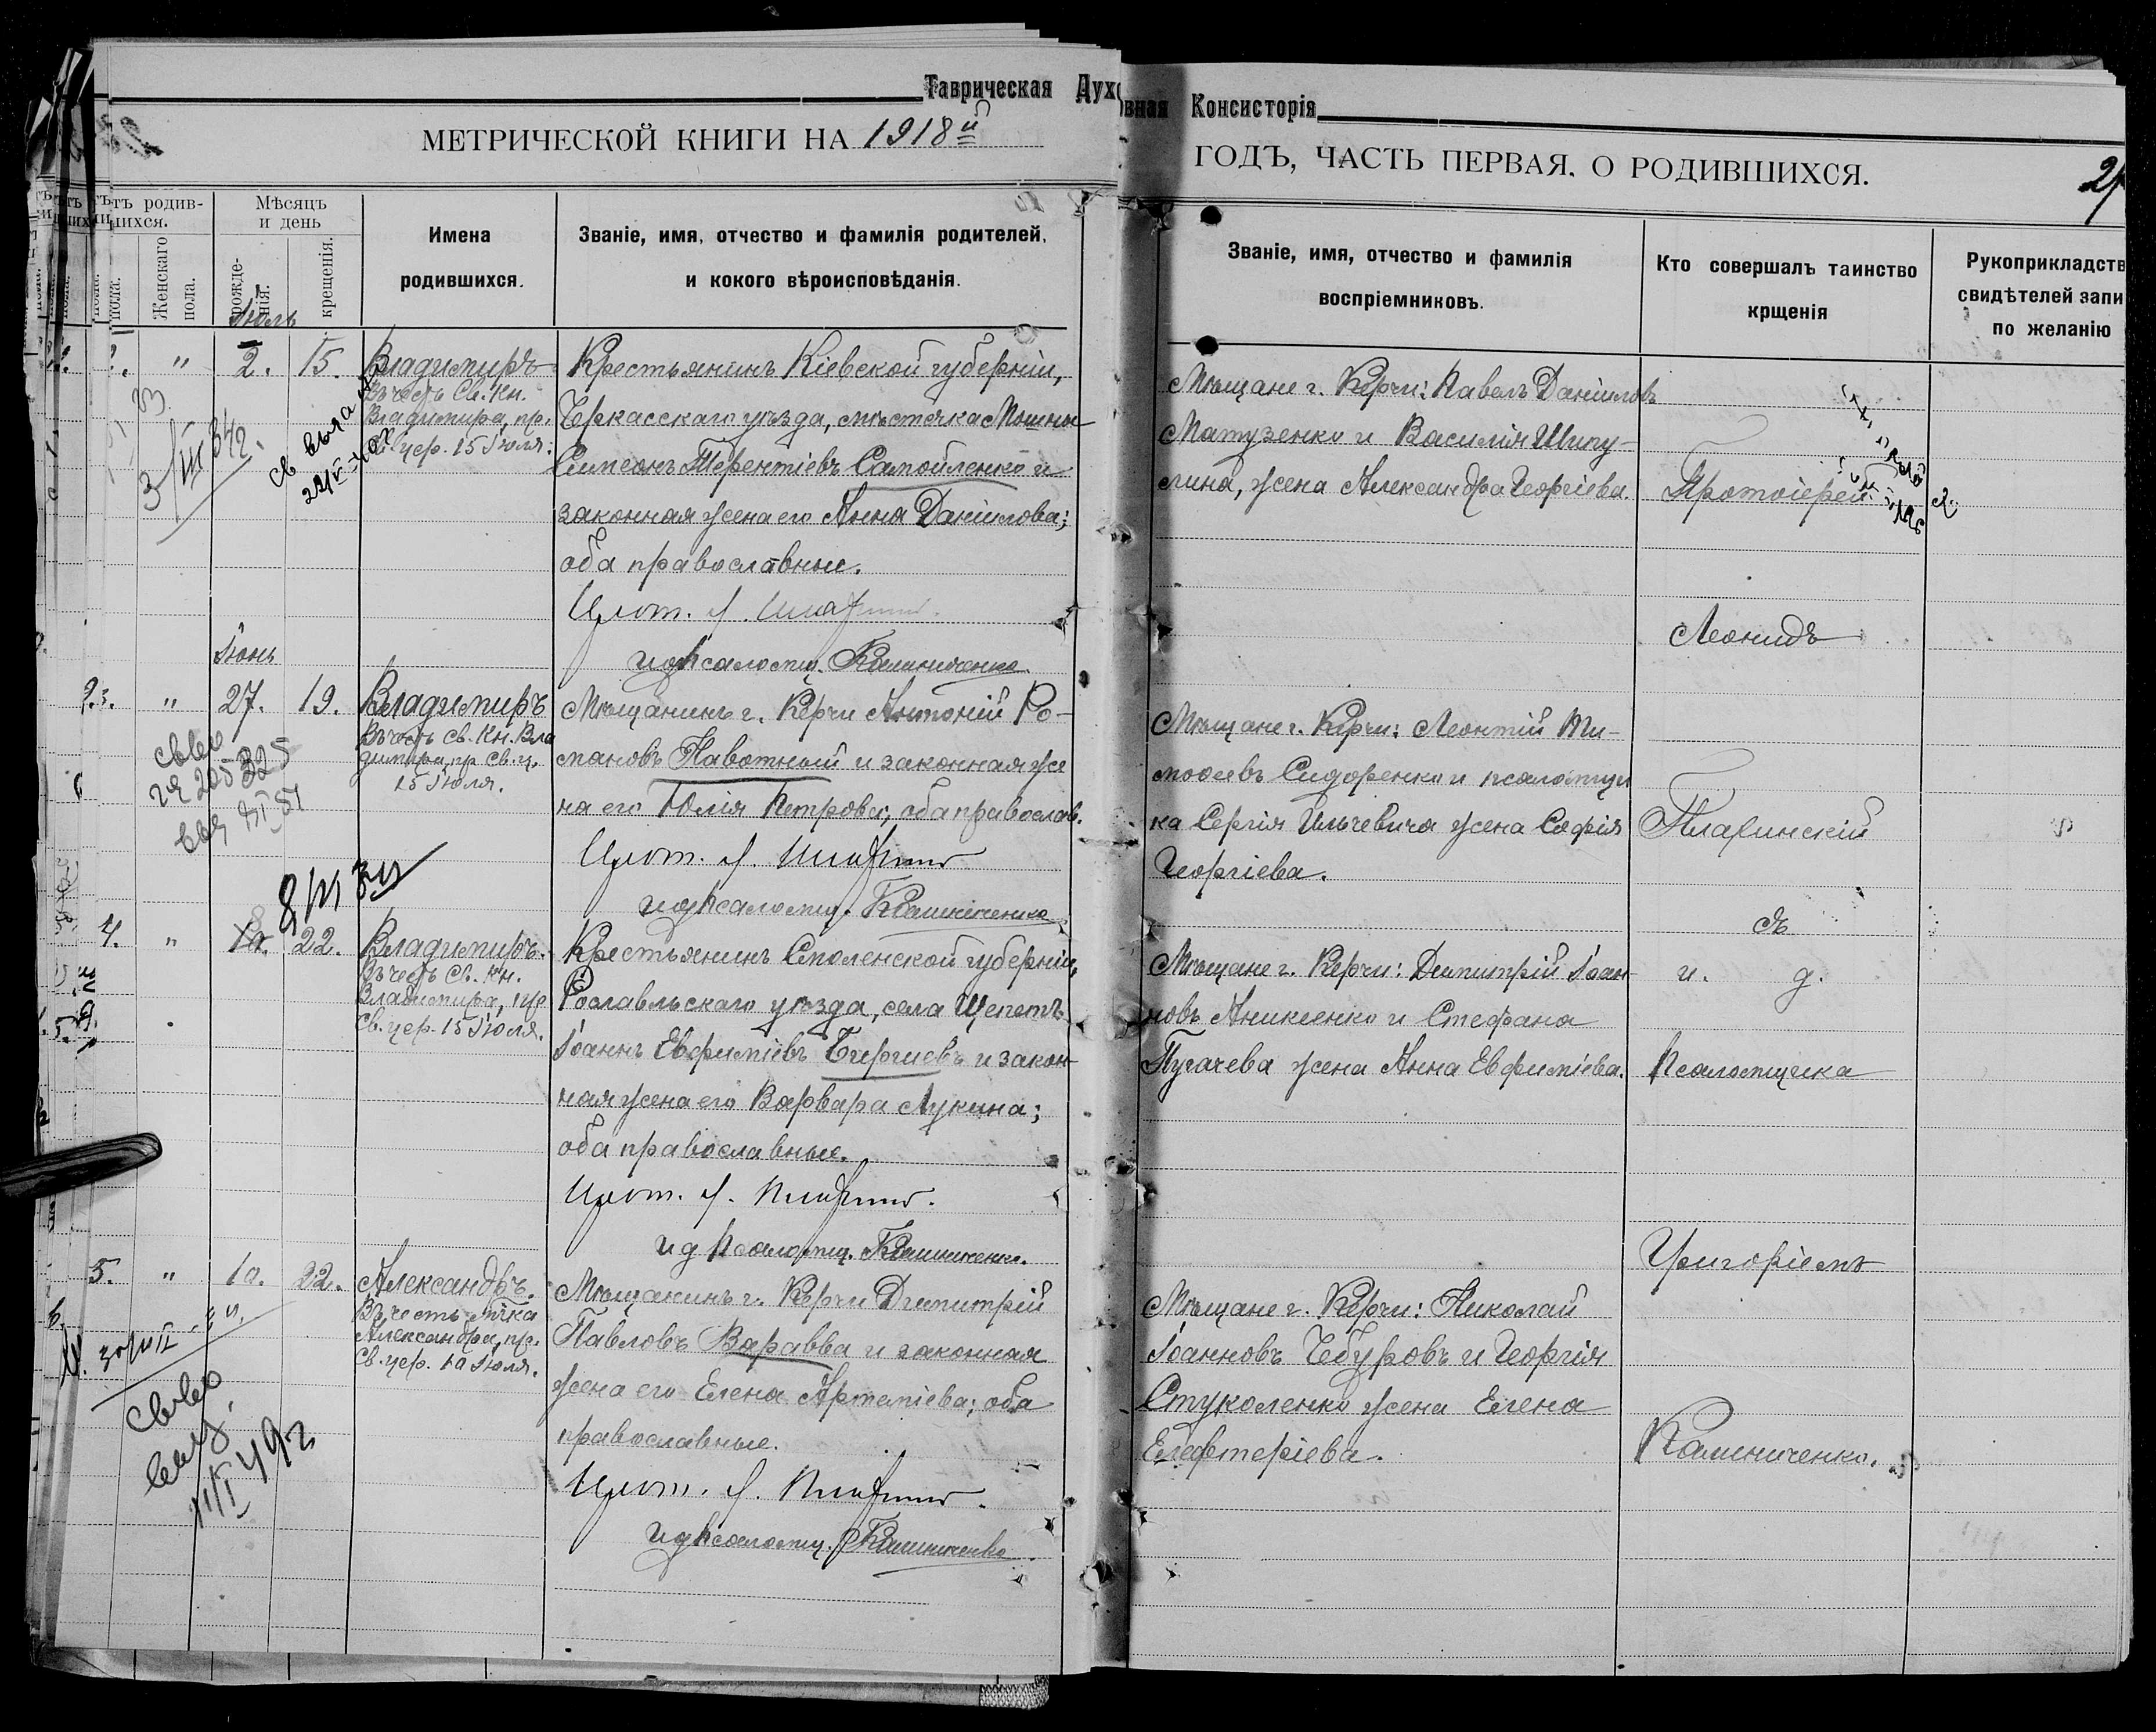 Таврическая Духовная Консисторія
МЕТРИЧЕСКОЙ КНИГИ НА 1918й ГОДЪ, ЧАСТЬ ПЕРВАЯ. О РОДИВШИХСЯ.
Мѣсяцъ
и день
Женскаго пола.
крещенія.
Имена
родившихся.
Званіе, имя, отчество и фамилія родителей,
и кокого вѣроисповѣданія.
Званіе, имя, отчество и фамилія
воспріемниковъ.
Кто совершалъ таинство
крщенія
Рукоприкладств
свидѣтелей запи
по желанію
Іюль
" 2. 15. Владимиръ
Въ честь Св. Кн.
Владимира, пр.
Св. цер. 15 Іюля.
Крестьянинъ Кіевской губерніи,
Черкасскаго уѣзда, мѣстечка Мошны
Симеонъ Терентіевъ Самойленко и
законная жена его Анна Даніилова;
оба православные.
Прот. Л.
и д псаломщ. Калиниченко.
Мѣщане г. Керчи: Павелъ Даніиловъ
Матузенко и Василія Шипу-
лина, жена Александра Георгіева.
Протоіерей
Леонидъ
Іюнь
3. " 27. 19. Владимиръ
Въ честь Св. Кн. Вла
димира, пр. Св. ц.
15 Іюля.
Мѣщанинъ г. Керчи Антоній Ро-
мановъ Павотный и законная же
на его Юлія Петрова, оба православ.
Прот. Л.
и д псаломщ. Калиниченко
Мѣщане г. Керчи: Леонтій Ти-
моѳеевъ Сидоренко и псаломщи
ка Сергія Ильчевича жена Софія
Георгіева.
съ
4. " 22. Владимиръ.
Въ честь Св. Кн.
Владимира, пр.
Св. цер. 15 Іюля.
Крестьянинъ Смоленской губерніи,
Рославльскаго уѣзда, села Щепетъ
Іоаннъ Евфиміевъ и закон-
ная жена его Варвара Лукина;
оба православные.
Прот. Л.
и д Псаломщ. Калиниченко.
Мѣщане г. Керчи: Димитрій Іоан-
новъ Аникеенко и Стефана
Пугачева жена Анна Евфиміева.
и. д.
Псаломщика
Григоріемъ
5. " 10. 22. Александръ.
Въ честь
Александра, пр.
Св. цер. 10 Іюля.
Мѣщанинъ г. Керчи Димитрій
Павловъ Варавва и законная
жена его Елена Артеміева; оба
православные.
Прот. Л.
и д псаломщ. Калиниченко
Мѣщане г. Керчи: Николай
Іоанновъ Чебуровъ и Георгія
Стуколенко жена Елена
Елефтеріева.
Калиниченко.